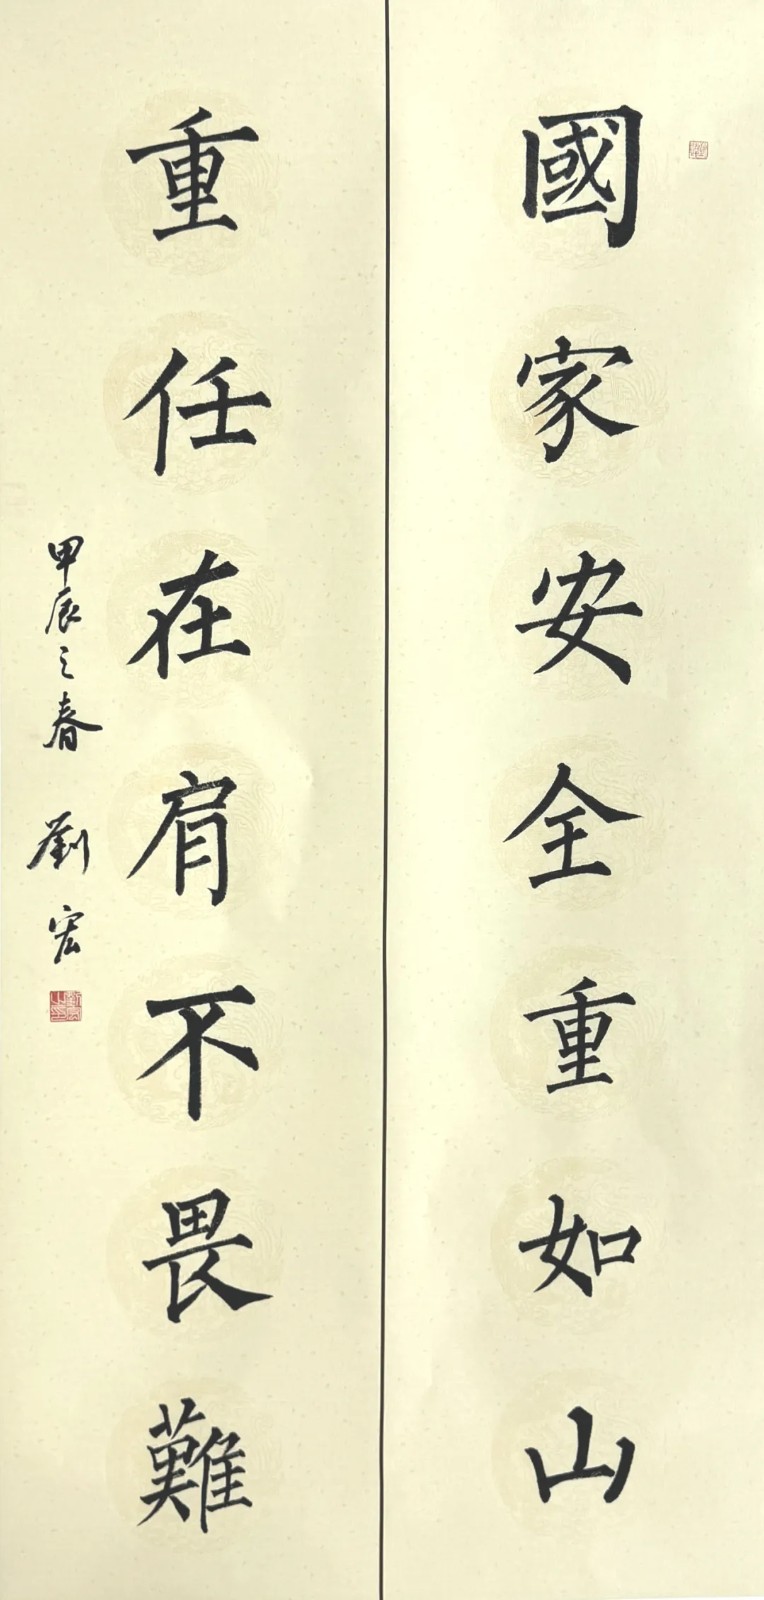 國家安全重如山
重任在肩不畏難
甲辰之春 劉宏